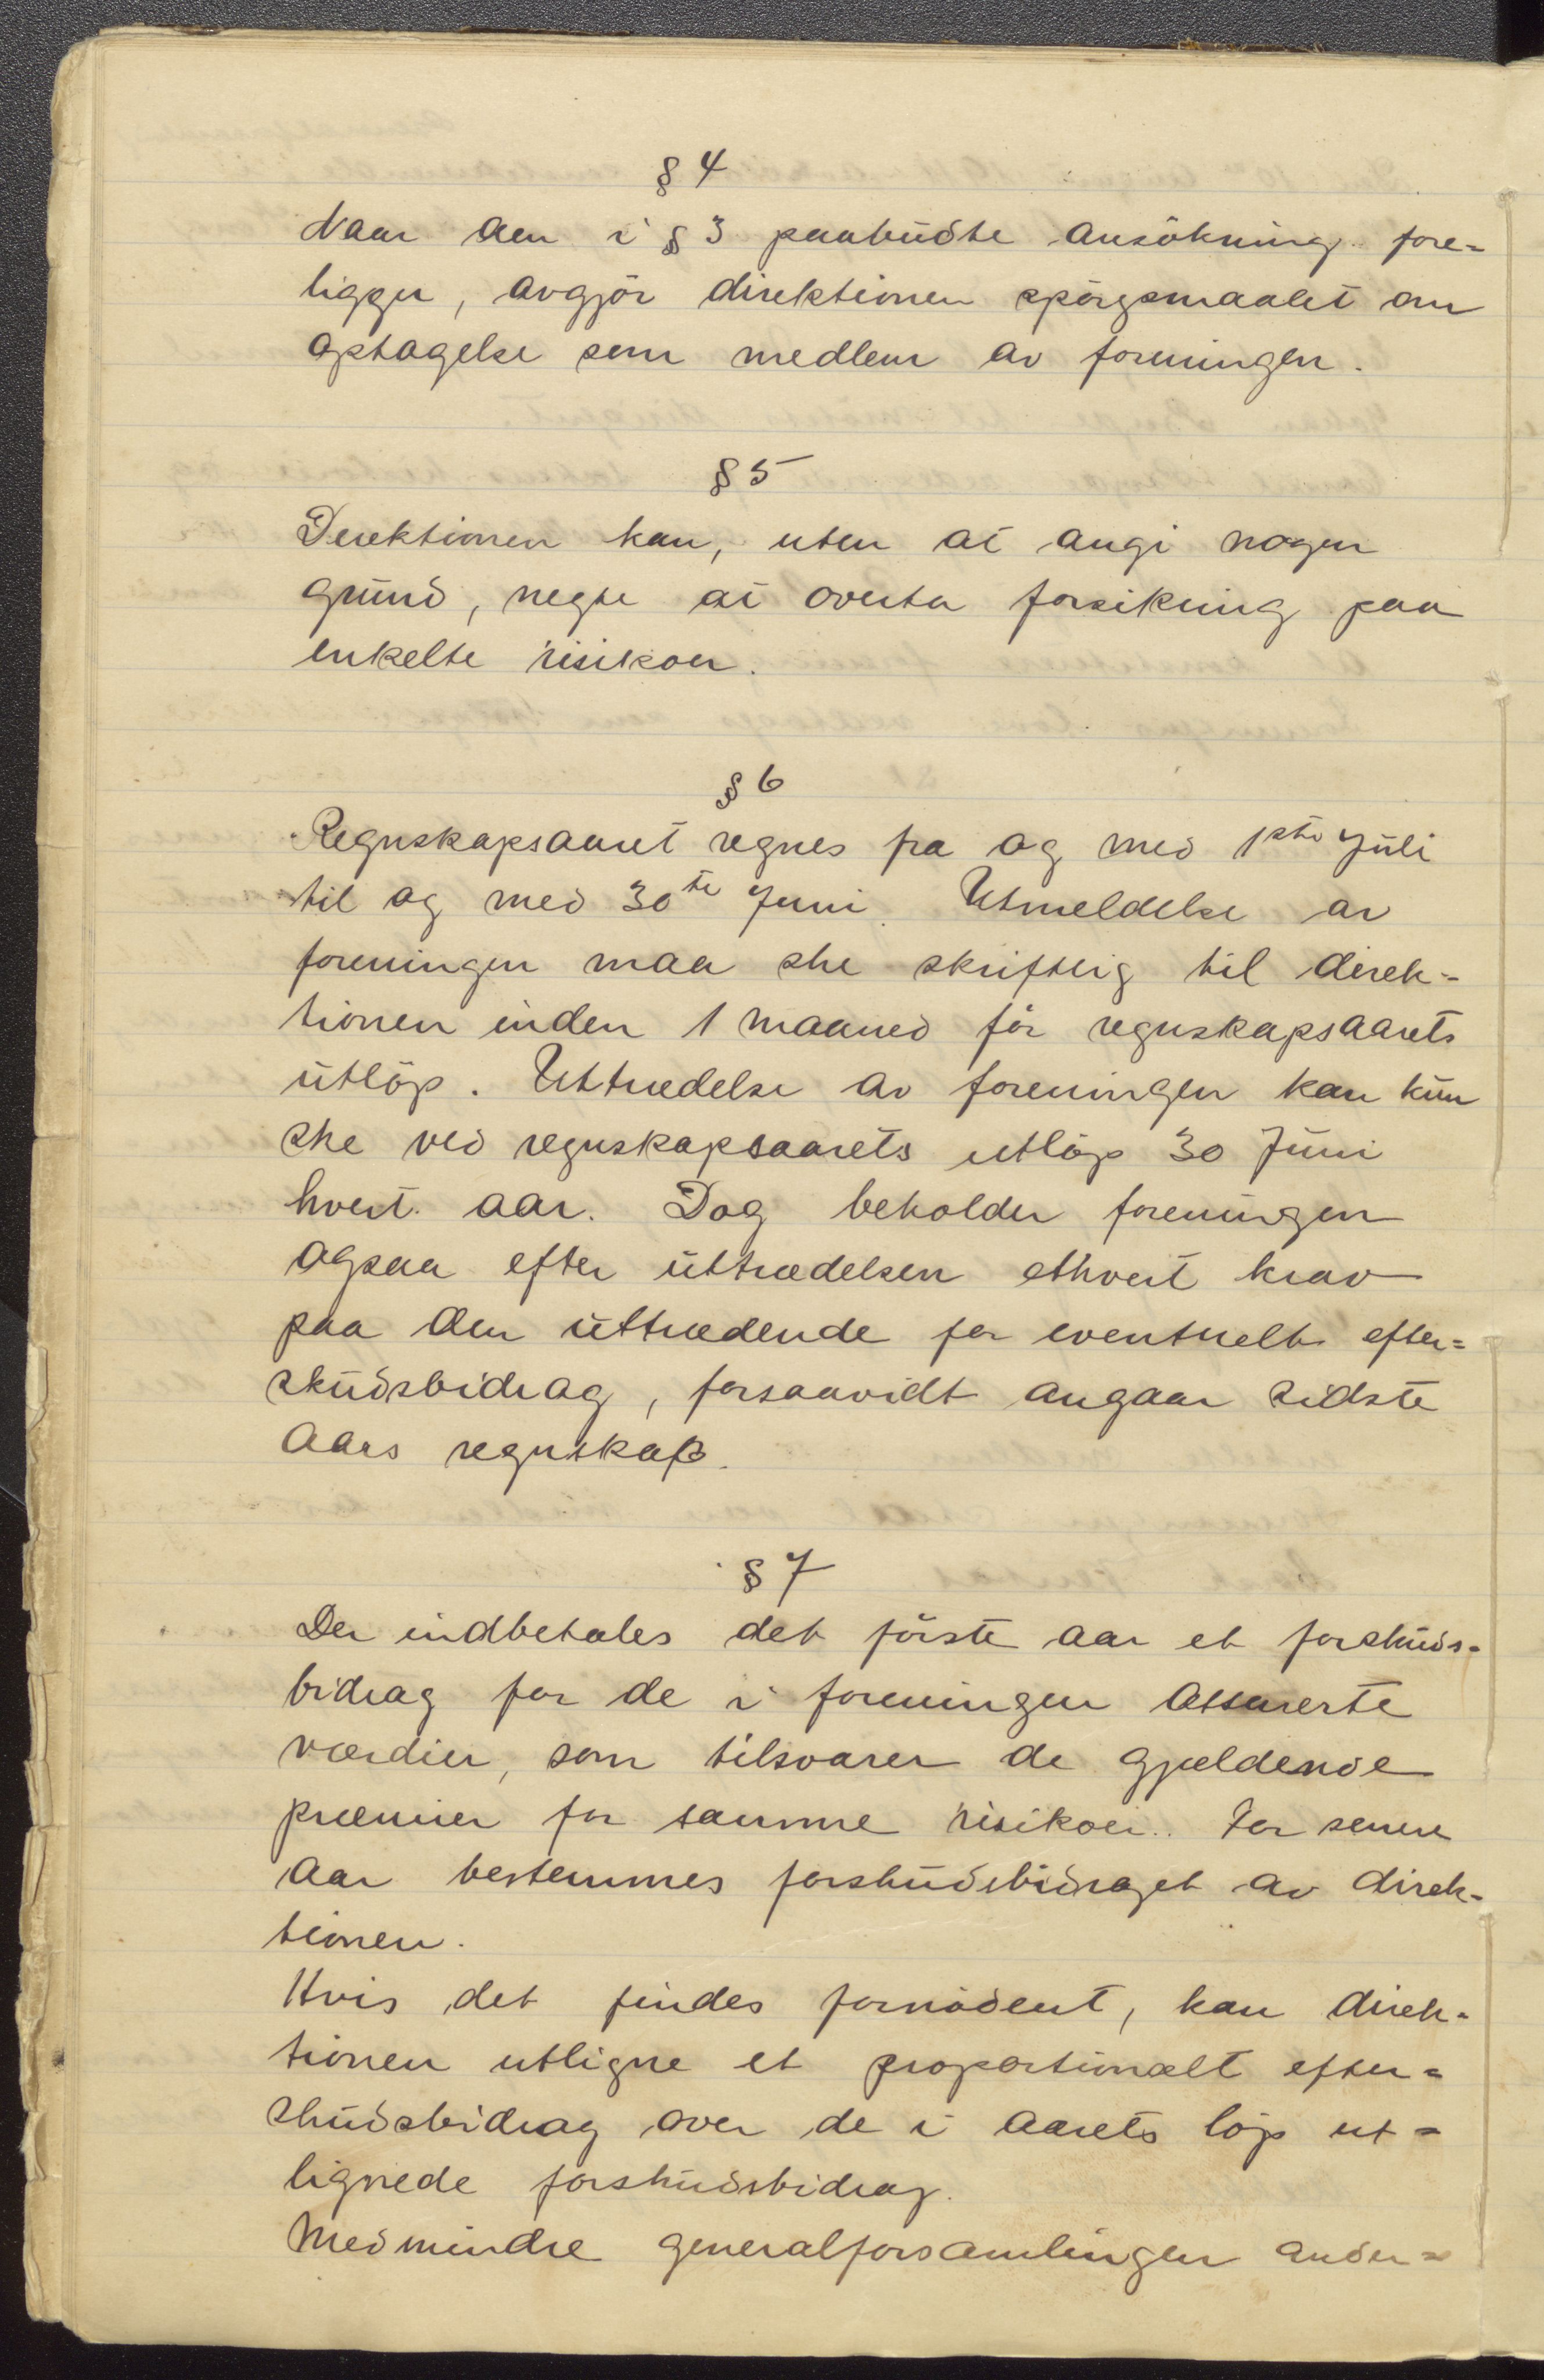 § 4
Naar den i § 3 paabudte ansökning fore=
ligger, avgjör direktionen spörgsmaalet om
optagelse som medlem av foreningen.
§ 5
Direktionen kan, uten at angi nogen
grund, negte at overta forsikring paa
enkelte risikoer.
§ 6
Regnskapsaaret regnes fra og med 1ste Juli
til og med 30te Juni. Utmeldelse av
foreningen maa ske skriftlig til direk=
tionen inden 1 maaned för regnskapsaarets
utlöp. Uttrædelse av foreningen kan kun
ske ved regnskapsaarets utlöp 30 Juni
hvert aar. Dog beholder foreningen
ogsaa efter uttrædelsen ethvert krav
paa den uttrædende for eventuelt efter=
skudsbidrag, forsaavidt angaar sidste
aars regnskap.
§ 7
Der indbetales det förste aar et forskuds=
bidrag for de i foreningen assurerte
værdier, som tilsvarer de gjældende
præmier for samme risikoer. For senere
aar bestemmes forskudsbidraget av direk=
tionen.
Hvis det findes fornödent, kan direk=
tionen utligne et proportionalt efter=
skudsbidrag over de i aarets löp ut=
lignede forskudsbidrag.
Medmindre generalforsamlingen ander=